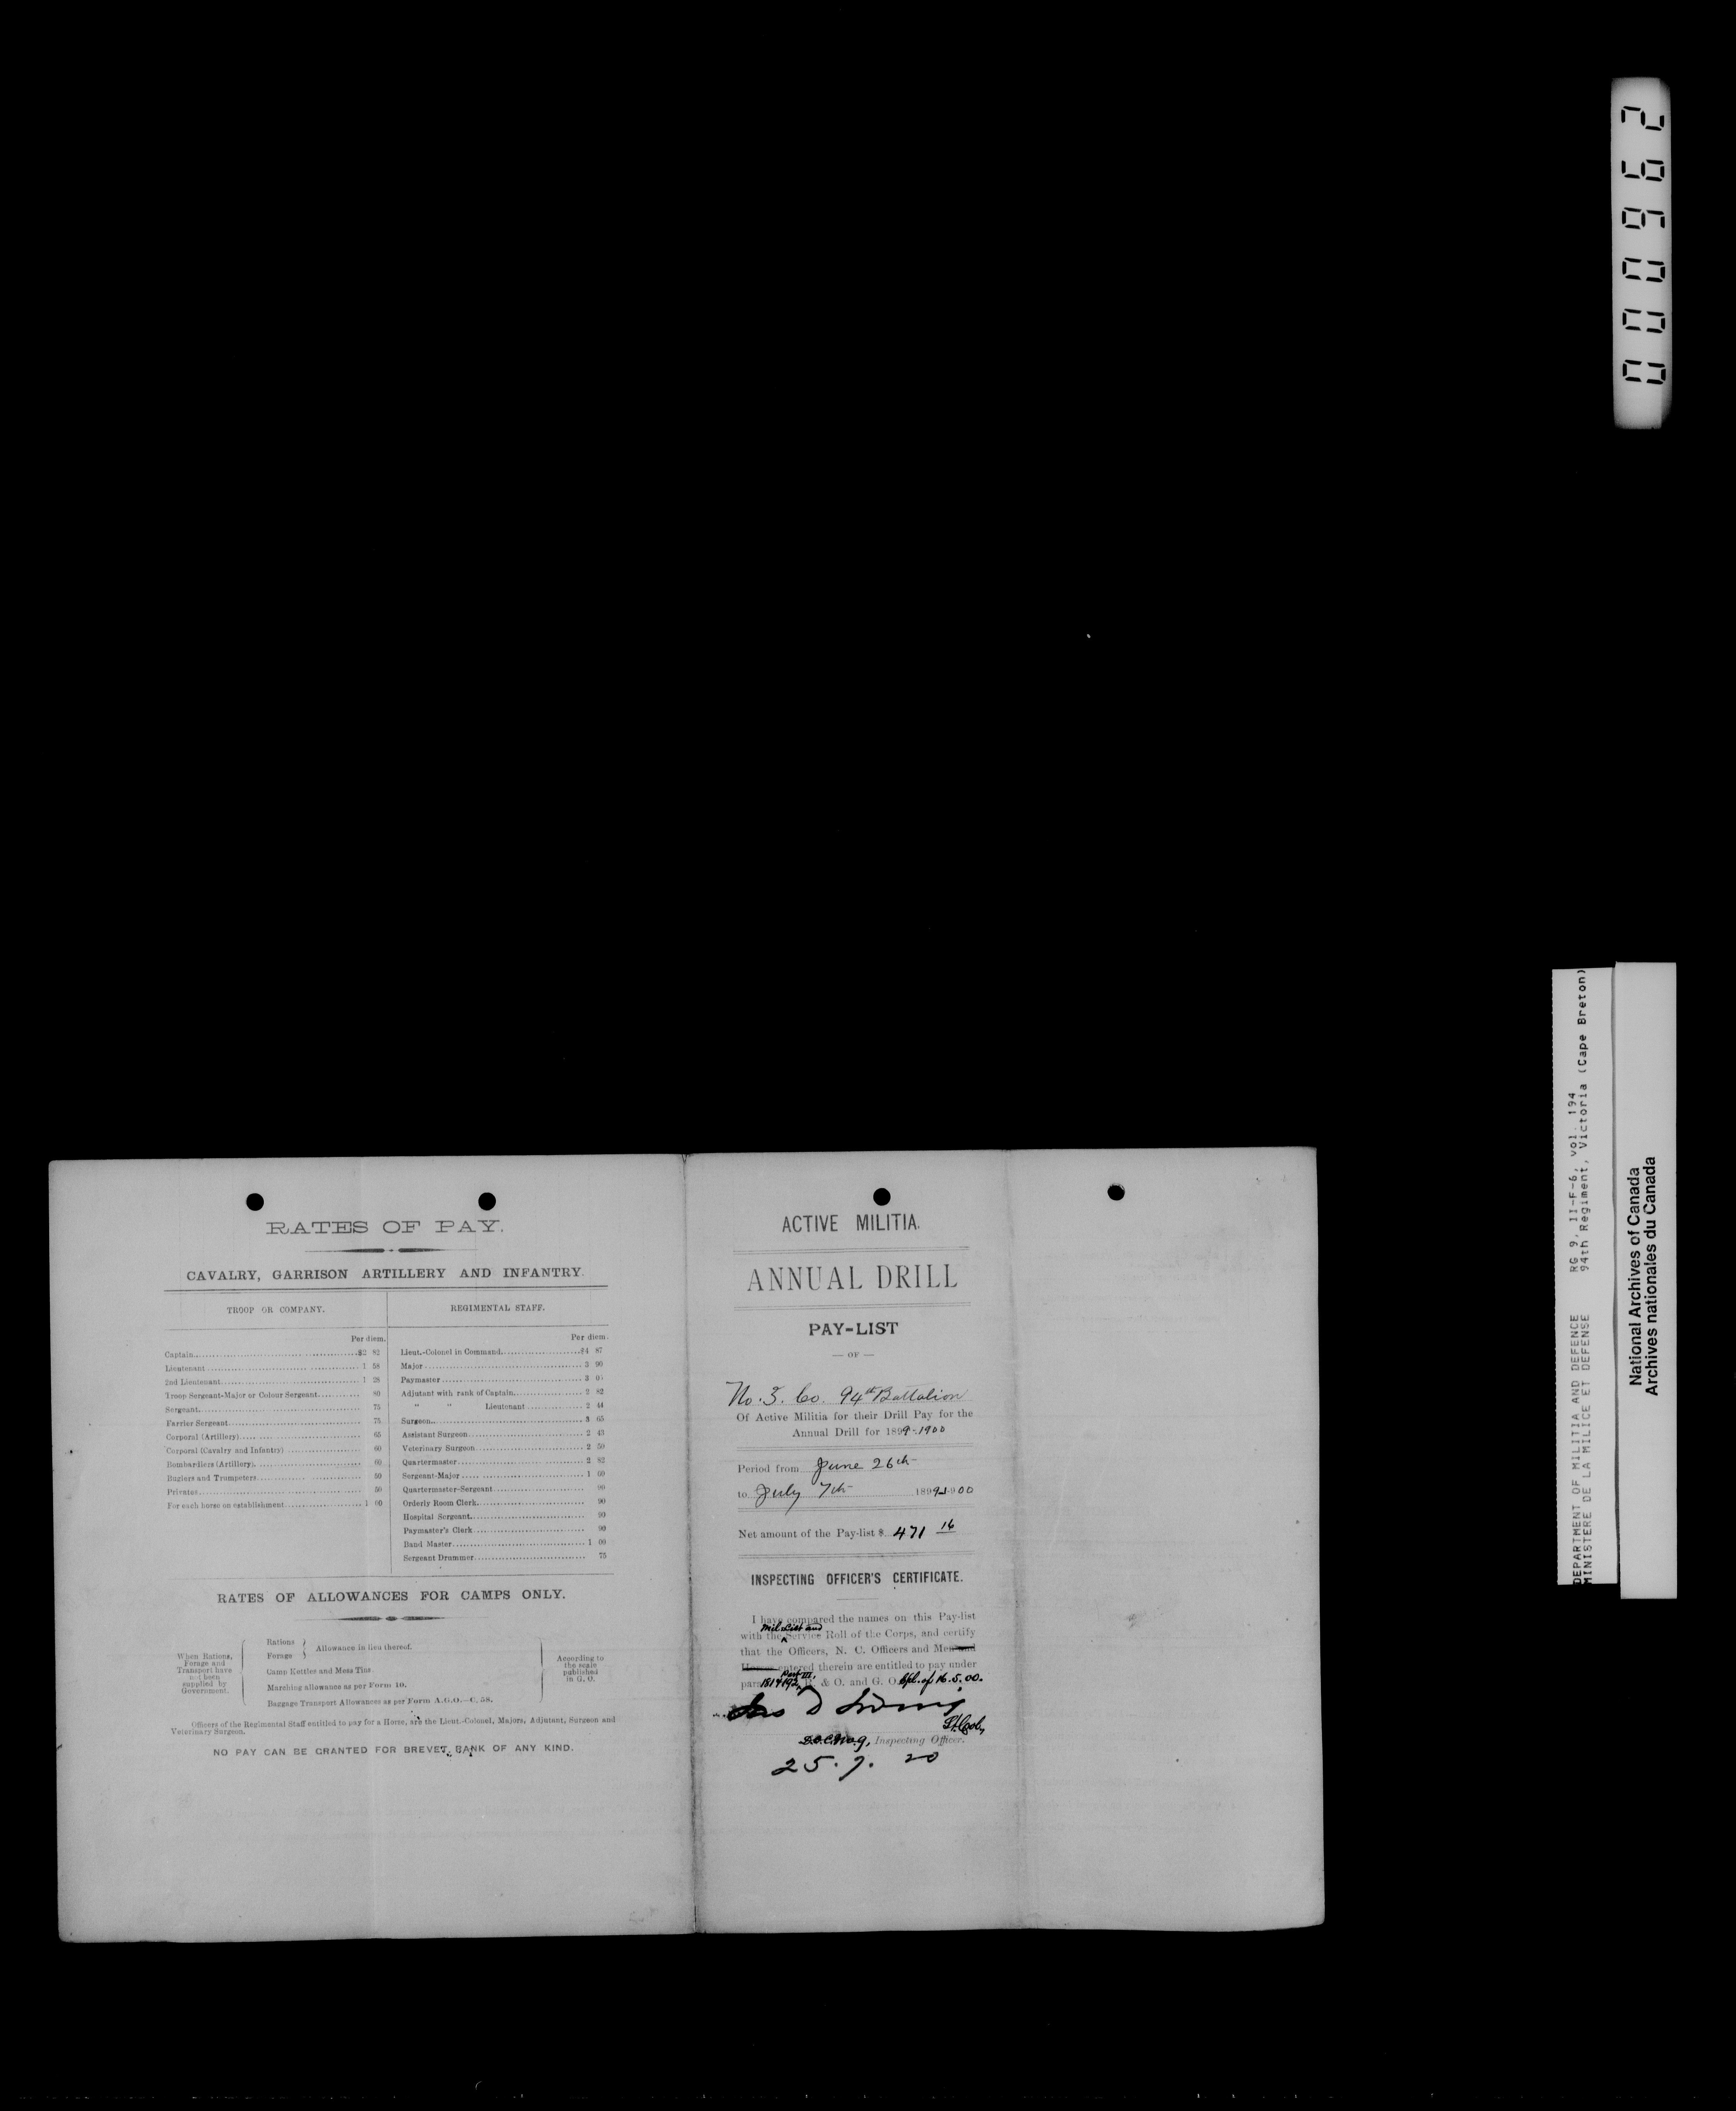 000962
RATES OF PAY.
CAVALRY, GARRISON ARTILLERY AND INFANTRY.
TROOP OR COMPANY.
Per diem.
Captain $2 82
Lieutenant 1 58
2nd Lieutenant 1 28
Troop Sergeant-Major or Colour Sergeant 80
Sergeant 75
Farrier Sergeant 75
Corporal (Artillery) 65
Corporal (Cavalry and Infantry) 60
Bombardiers (Artillery) 60
Buglers and Trumpeters 50
Privates 50
For each horse on establishment 1 00
REGIMENTAL STAFF.
Per diem.
Lieut.-Colonel in Command $4 87
Major 3 90
Paymaster 3 05
Adjutant with rank of Captain 2 82
" " Lieutenant 2 44
Surgeon 3 65
Assistant Surgeon 2 43
Veterinary Surgeon 2 50
Quartermaster 2 82
Sergeant-Major 1 00
Quartermaster-Sergeant 90
Orderly Room Clerk 90
Hospital Sergeant 90
Paymaster's Clerk 90
Band Master 1 00
Sergeant Drummer 75
RATES OF ALLOWANCES FOR CAMPS ONLY.
When Rations, Forage and Transport have not been supplied by Government.
Rations
Forage
Allowance in lieu thereof.
Camp Kettles and Mess Tins
Marching allowance as per Form 10.
Baggage Transport Allowances as per Form A.G.O.—C. 58.
According to the scale published in G. O.
Officers of the Regimental Staff entitled to pay for a Horse, are the Lieut.-Colonel, Majors, Adjutant, Surgeon and
Veterinary Surgeon.
NO PAY CAN BE GRANTED FOR BREVET RANK OF ANY KIND.
ACTIVE MILITIA.
ANNUAL DRILL
PAY-LIST
— OF —
No. 3. Co. 94th Battalion
Of Active Militia for their Drill Pay for the
Annual Drill for 1899-1900
Period from June 26th
to July 7th 1899-1900
Net amount of the Pay-list $ 471 16
INSPECTING OFFICER'S CERTIFICATE.
I have compared the names on this Pay-list
with the Mil. List and Service Roll of the Corps, and certify
that the Officers, N. C. Officers and Men and
Horses entered therein are entitled to pay under
Part III,
& O. and G. O. of 16.5.00.
D.O.C. No. 9, Inspecting Officer.
DEPARTMENT OF MILITIA AND DEFENCE RG 9, II-F-6, vol. 194
MINISTERE DE LA MILICE ET DEFENSE 94th Regiment, Victoria (Cape Breton)
National Archives of Canada
Archives nationales du Canada